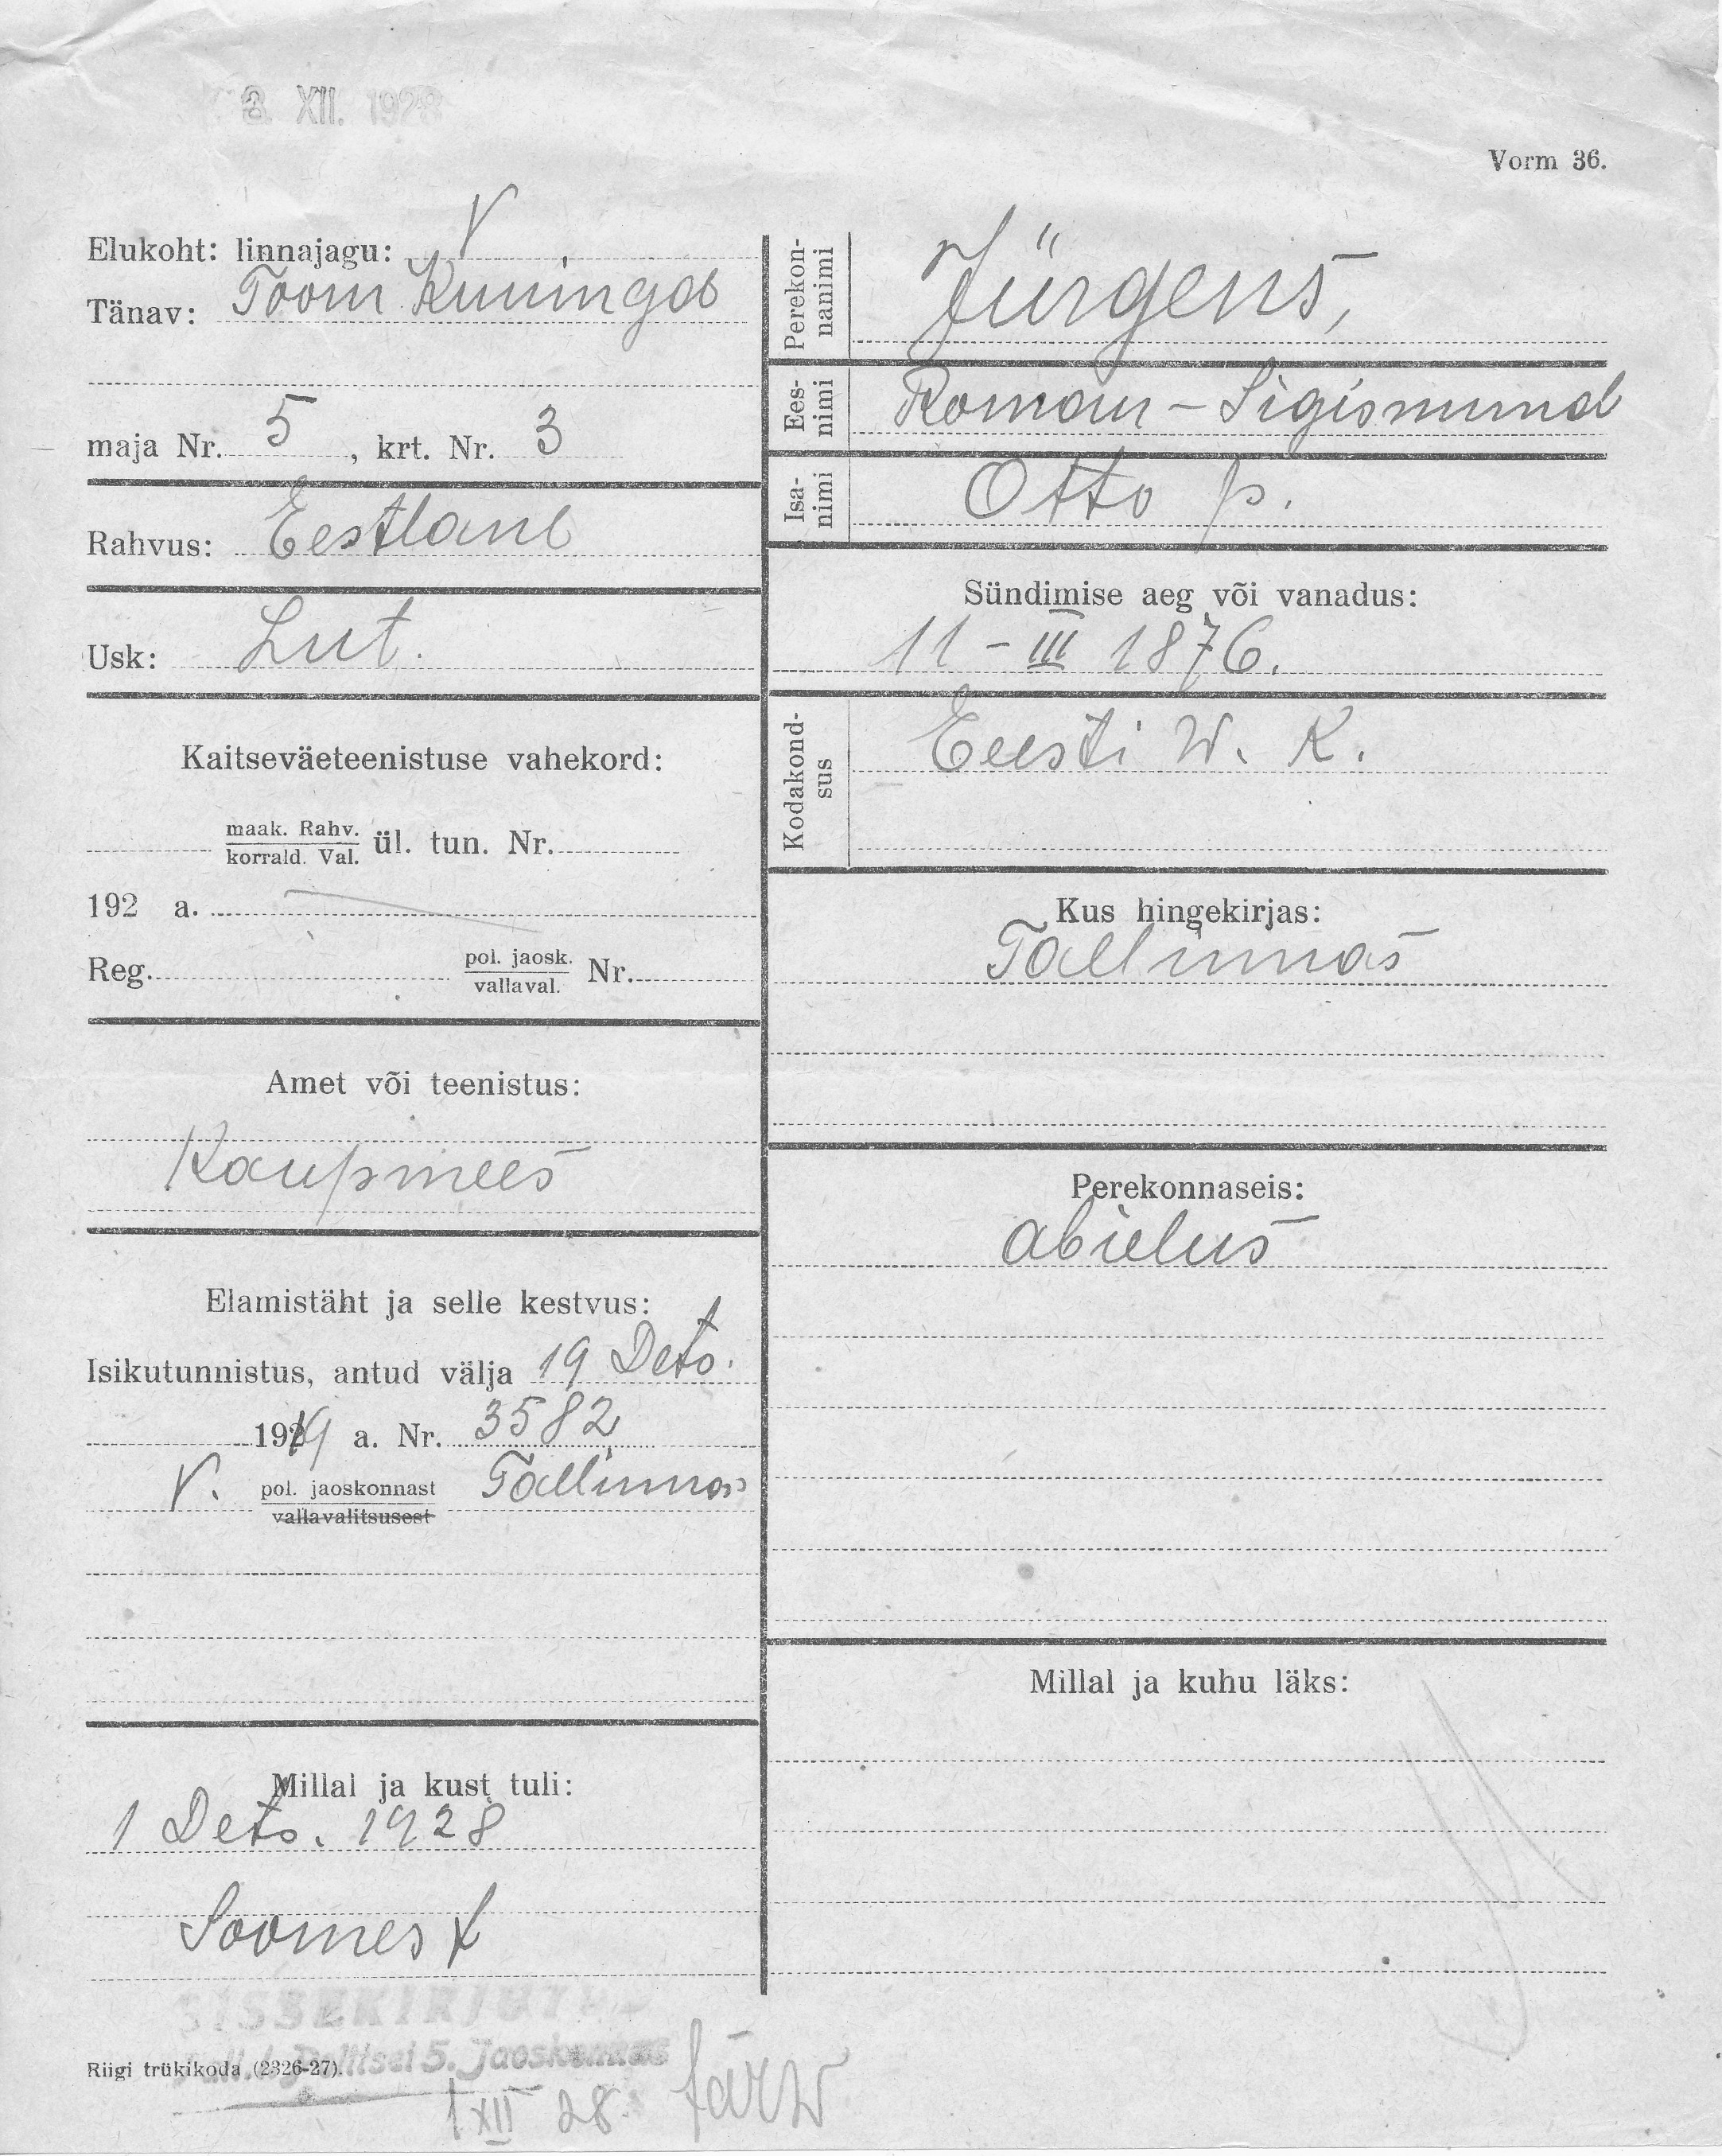 XII. 1928
Vorm 36.
Elukoht: linnajagu: V
Tänav: Toom Kuninga
maja Nr. 5, krt. Nr. 3
Rahvus: Eestlane
Usk: Lut.
Kaitseväeteenistuse vahekord:
maak. Rahv.
korrald. Val.
ül. tun. Nr.
192 a.
Reg. pol. jaosk. Nr.
vallaval.
Amet või teenistus:
Kaupmees
Elamistäht ja selle kestvus:
Isikutunnistus, antud välja 19 Dets.
1919 a. Nr. 3582
V. pol. jaoskonnast Tallinnas
vallavalitsusest
Millal ja kust tuli:
1 Dets. 1928
Soomest
SISSEKIRJUTATUD
Tall. Politsei 5. Jaoskonnas
Riigi trükikoda (2326-27).
1 XII 28
Perekon-
nanimi
Jürgens,
Ees-
nimi
Roman-Sigismund
Isa-
nimi
Otto p.
Sündimise aeg või vanadus:
11-III 1876.
Kodakond-
sus
Eesti W. K.
Kus hingekirjas:
Tallinnas
Perekonnaseis:
abielus
Millal ja kuhu läks: